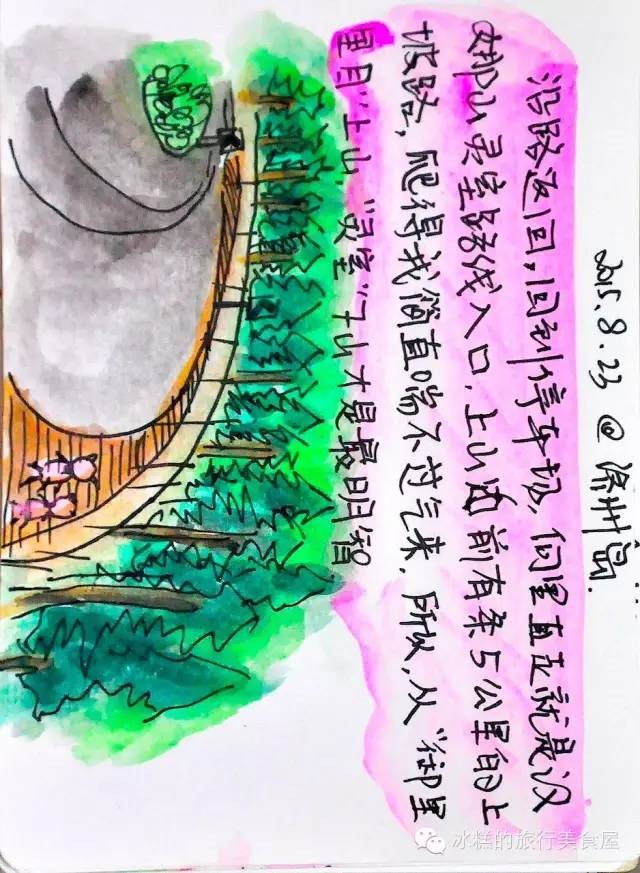 2015.8.23 @ 济州岛.
沿路返回,回到停车场,向里直走就是汉
娜山灵室路线入口,上山前有条5公里的上
坡路,爬得我简直喘不过气来,所以,从“御里
里目”上山“灵室”下山才是最明智
冰糕的旅行美食屋